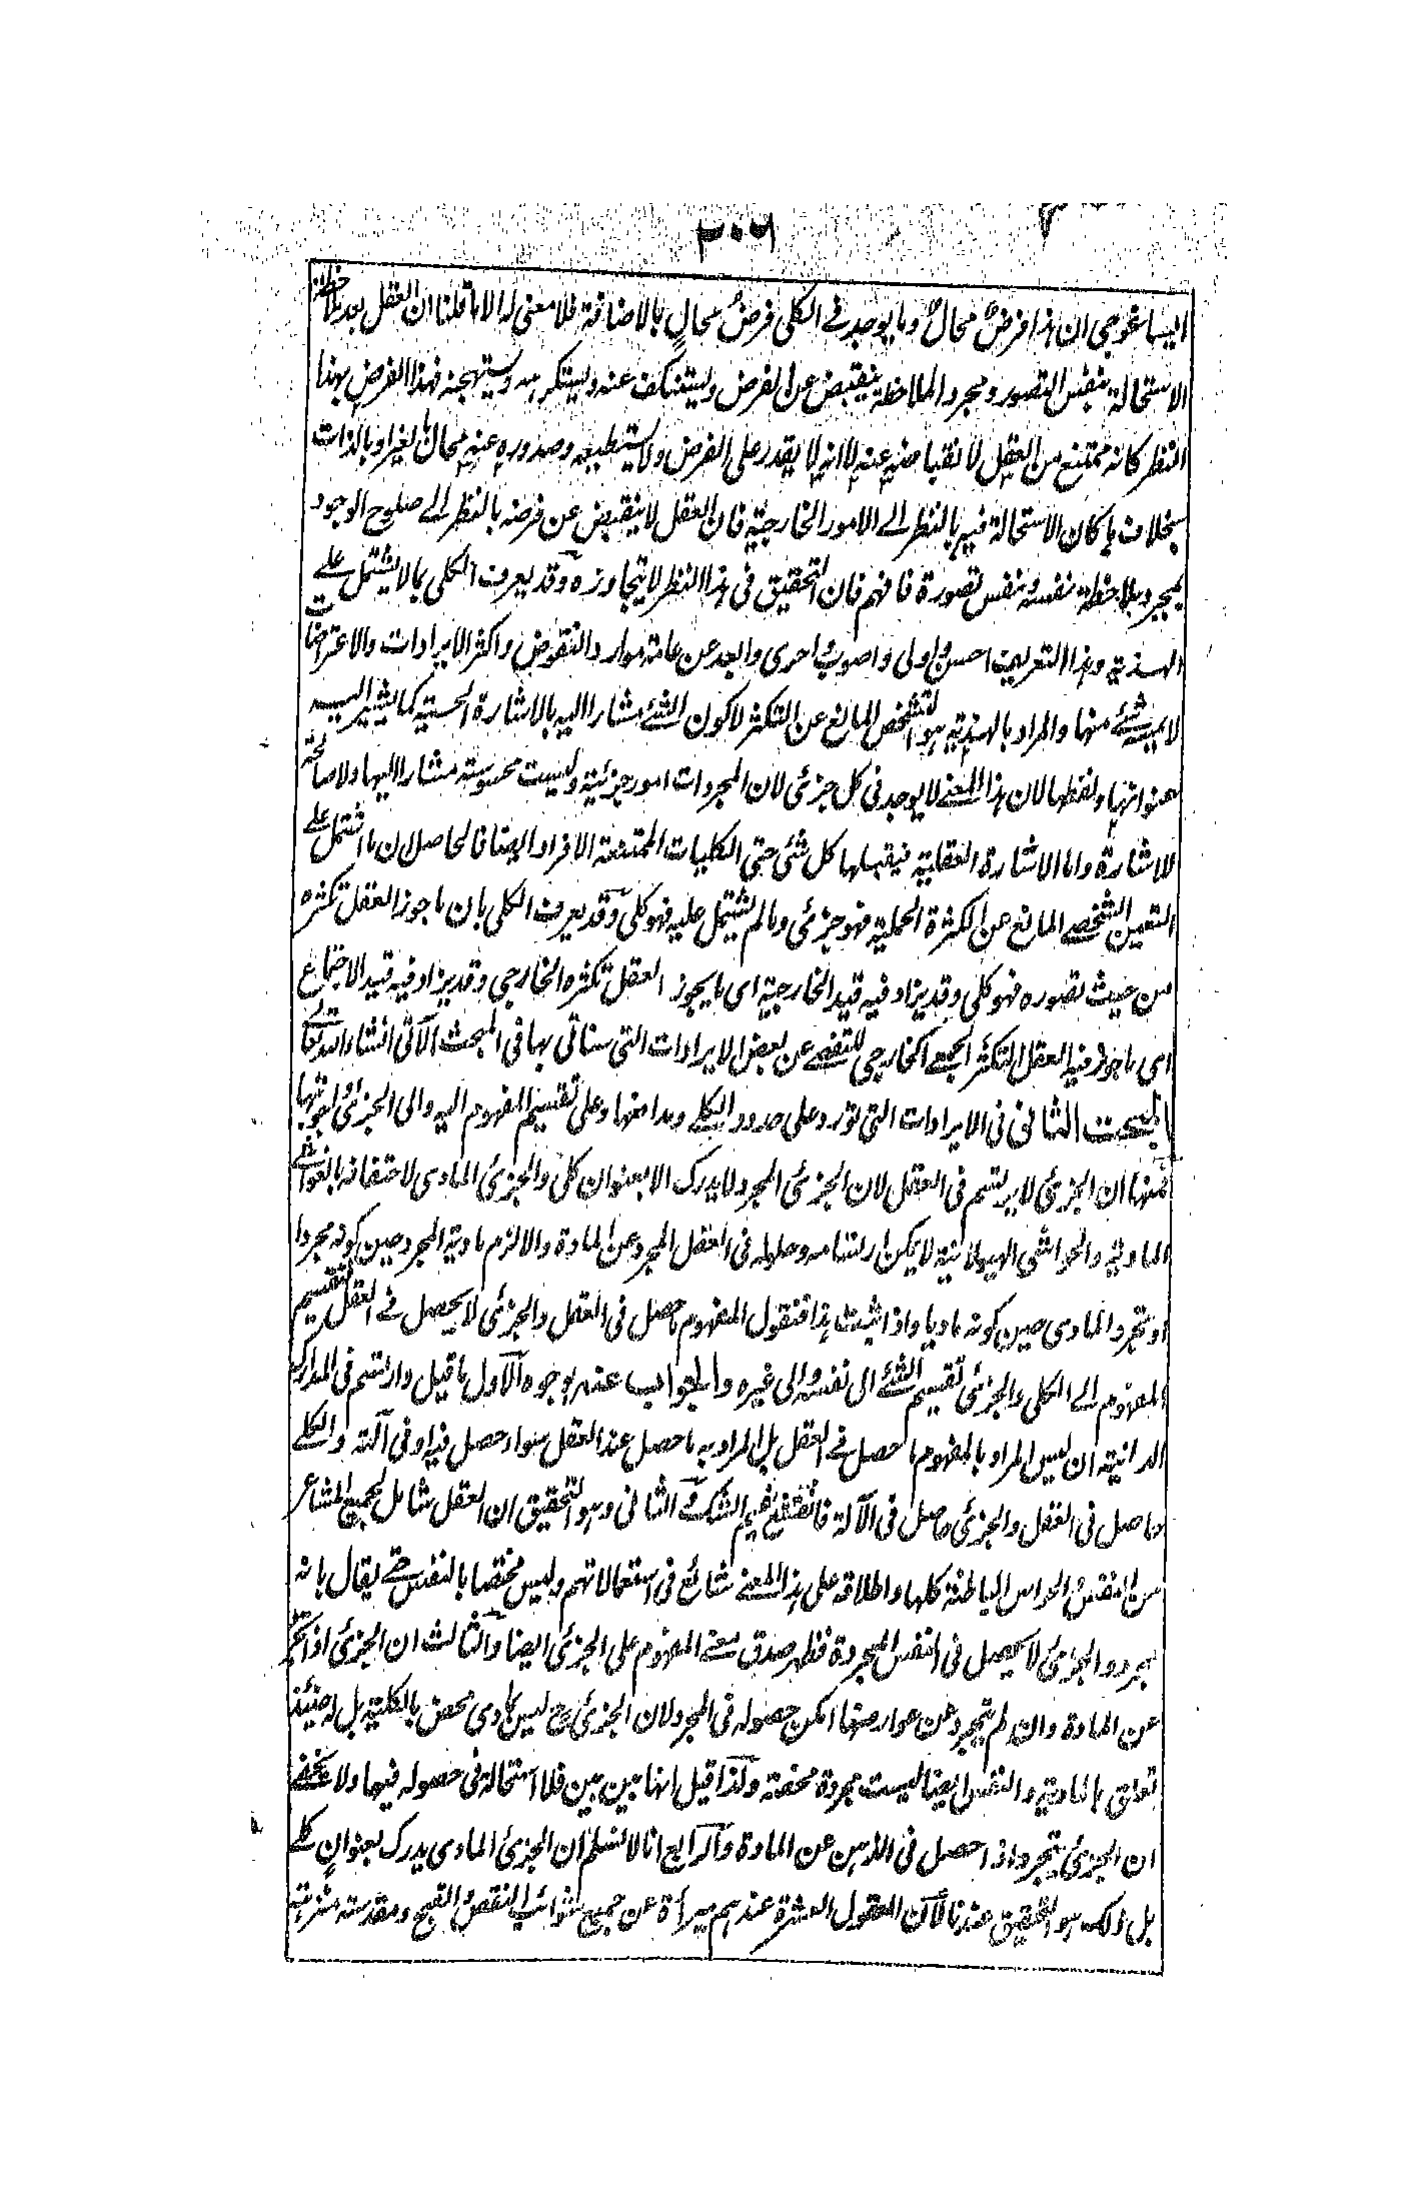 ٣٠٦
ايساغوجي ان هذا فرضٌ محالٌ وما يوجد في الكلي فرضُ محالٍ بالاضافة فلا معنى له الا ما قلنا ان العقل بعد ملاحظة
الاستحالة بنفس التصور ومجرد الملاحظة ينقبض عن الفرض ويستنكف عنه ويستكرهه ويستهجنه فهذا الفرض بهذا
النظر كانه ممتنع من العقل لانقباضه عنه لا انه لا يقدر على الفرض ولا يستطيعه وصدوره عنه محال بالغير او بالذات
بخلاف ما كان الاستحالة فيه بالنظر الى الامور الخارجية فان العقل لا ينقبض عن فرضه بالنظر الى صلوح الوجود
بمجرد ملاحظة نفسه ونفس تصوره فافهم فان التحقيق في هذا النظر لا يتجاوزه وقد يعرف الكلي بما لا يشتمل على
الهذية وهذا التعريف احسن واولى واصوب واحرى وابعد عن عامة موارد النقوض واكثر الايرادات والاعتراضات
لا يمسه شئ منها والمراد بالهذية هو التشخص المانع عن التكثر لا كون الشئ مشارا اليه بالاشارة الحسية كما يشير اليه
عنوانها ولفظها لان هذا المعنى لا يوجد في كل جزئي لان المجردات امور جزئية وليست محسوسة مشارا اليها ولا صالحة
للاشارة واما الاشارة العقلية فيقبلها كل شئ حتى الكليات الممتنعة الافراد ايضا فالحاصل ان ما اشتمل على
التعين الشخصي المانع عن الكثرة الحملية فهو جزئي وما لم يشتمل عليه فهو كلي وقد يعرف الكلي بان ما جوز العقل تكثره
من حيث تصوره فهو كلي وقد يزاد فيه قيد الخارجية اي ما يجوز العقل تكثره الخارجي وقد يزاد فيه قيد الاجتماع
اي ما جوز فيه العقل التكثر الجمعي الخارجي للتفصي عن بعض الايرادات التي سناتي بها في المبحث الآتي انشاء الله تعالى
المبحث الثاني في الايرادات التي تورد على حدود الكلي وما منها وعلى تقسيم المفهوم اليه والى الجزئي واجوبتها
فمنها ان الجزئي لا يرتسم في العقل لان الجزئي المجرد لا يدرك الا بعنوان كلي والجزئي المادي لاحتفافه بالغواشي
المادية والحواشي الهيولانية لا يمكن ارتسامه وحلوله في العقل المجرد عن المادة والا لزم مادية المجرد حين كونه مجردا
او تجرد المادي حين كونه ماديا واذا ثبت هذا فنقول المفهوم ما حصل في العقل والجزئي لا يحصل في العقل فتقسيم
المفهوم الى الكلي والجزئي تقسيم الشئ الى نفسه والى غيره والجواب عنه بوجوه الاول ما قيل وارتسم في المدارك
الدانية ان ليس المراد بالمفهوم ما حصل في العقل بل المراد به ما حصل عند العقل سواء حصل فيه او في آلته والكلي
حاصل في العقل والجزئي حاصل في الآلة فانقشع غيم الشك والثاني وهو التحقيق ان العقل شامل لجميع المشاعر
من النفس والحواس الباطنة كلها واطلاقه على هذا المعنى شائع في استعمالاتهم وليس مختصا بالنفس حتى يقال بانه
مجرد والجزئي لا يحصل في النفس المجردة فظهر صدق معنى المفهوم على الجزئي ايضا والثالث ان الجزئي اذا تجرد
عن المادة وان لم يتجرد عن عوارضها امكن حصوله في المجرد لان الجزئي ح ليس بمادي محض بالكلية بل له حينئذ
تعلق بالمادية والنفس ايضا ليست مجردة محضة ولذا قيل انها بين بين فلا استحالة في حصوله فيها ولا يخفى
ان الجزئي يتجرد اذا حصل في الذهن عن المادة والرابع انا لا نسلم ان الجزئي المادي يدرك بعنوان كلي
بل ذلك هو التحقيق عندنا لان العقول العشرة عندهم مبرأة عن جميع شوائب النقص والقبح ومقدسة منزهة